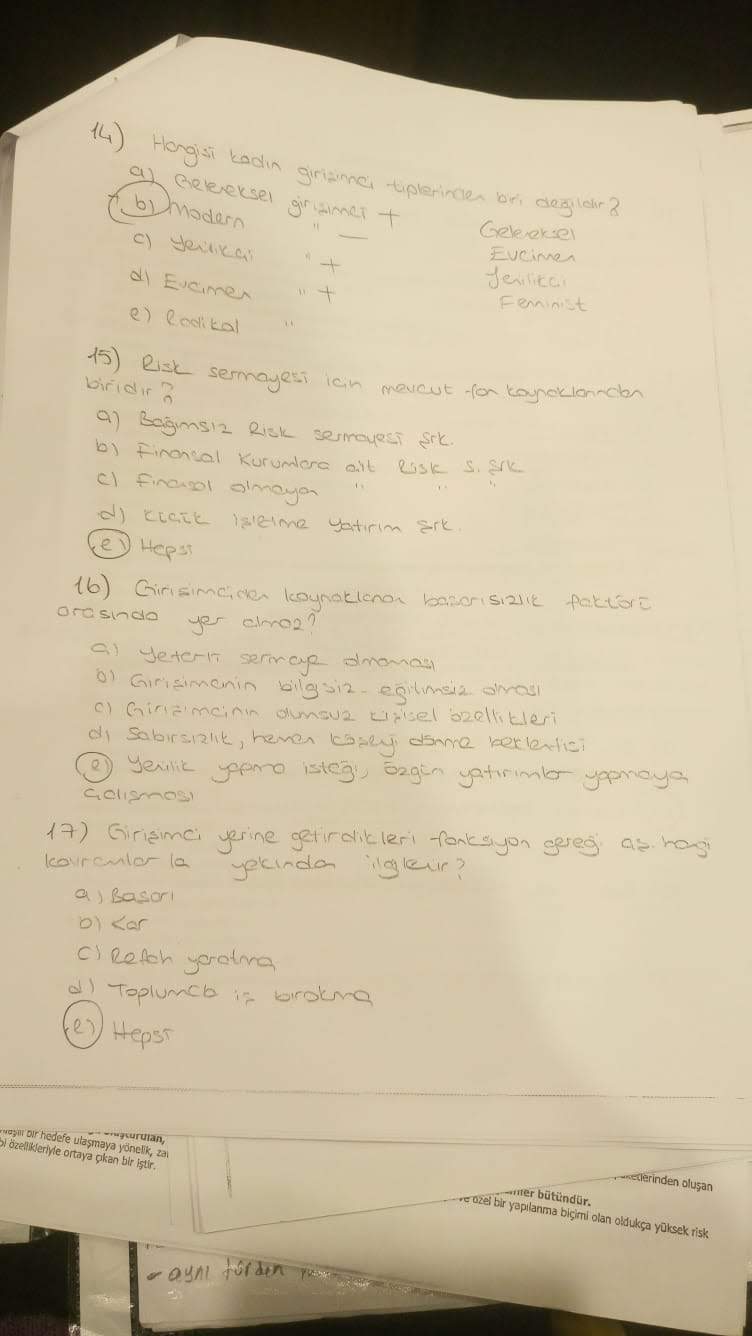 14) Hangisi kadın girişimci tiplerinden biri değildir?
a) Geleneksel girişimci +
b) Modern " —
c) Yenilikçi " +
d) Evcimen " +
e) Radikal "
Geleneksel
Evcimen
Yenilikçi
Feminist
15) Risk sermayesi için mevcut fon kaynaklarından
biridir?
a) Bağımsız Risk sermayesi Şrk.
b) Finansal Kurumlara ait Risk S. Şrk
c) Finansal olmayan " " "
d) Küçük işletme yatırım şrk.
e) Hepsi
16) Girişimciden kaynaklanan başarısızlık faktörü
arasında yer almaz?
a) Yeterli sermaye olmaması
b) Girişimcinin bilgisiz - eğitimsiz olması
c) Girişimcinin olumsuz kişisel özellikleri
d) Sabırsızlık, hemen köşeyi dönme beklentisi
e) Yenilik yapma isteği, özgün yatırımlar yapmaya
çalışması
17) Girişimci yerine getirdikleri fonksiyon gereği aş. hangi
kavramlar la yakından ilgilenir?
a) Başarı
b) Kar
c) Refah yaratma
d) Toplumda iz bırakma
e) Hepsi
bir hedefe ulaşmaya yönelik,
özellikleriyle ortaya çıkan bir iştir.
oluşan
bütündür.
ve özel bir yapılanma biçimi olan oldukça yüksek risk
- aynı türden